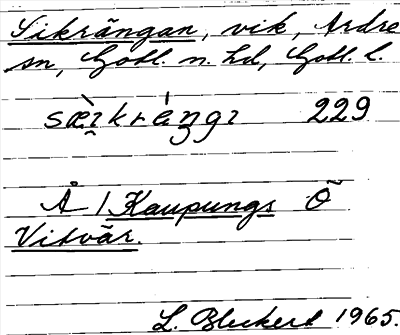 Sikrängan, vik, Ardre
sn, Gotl. n. hd, Gotl. l.
229
Å / Kaupungs Ö
Vitvär.
L. Bleckert 1965.